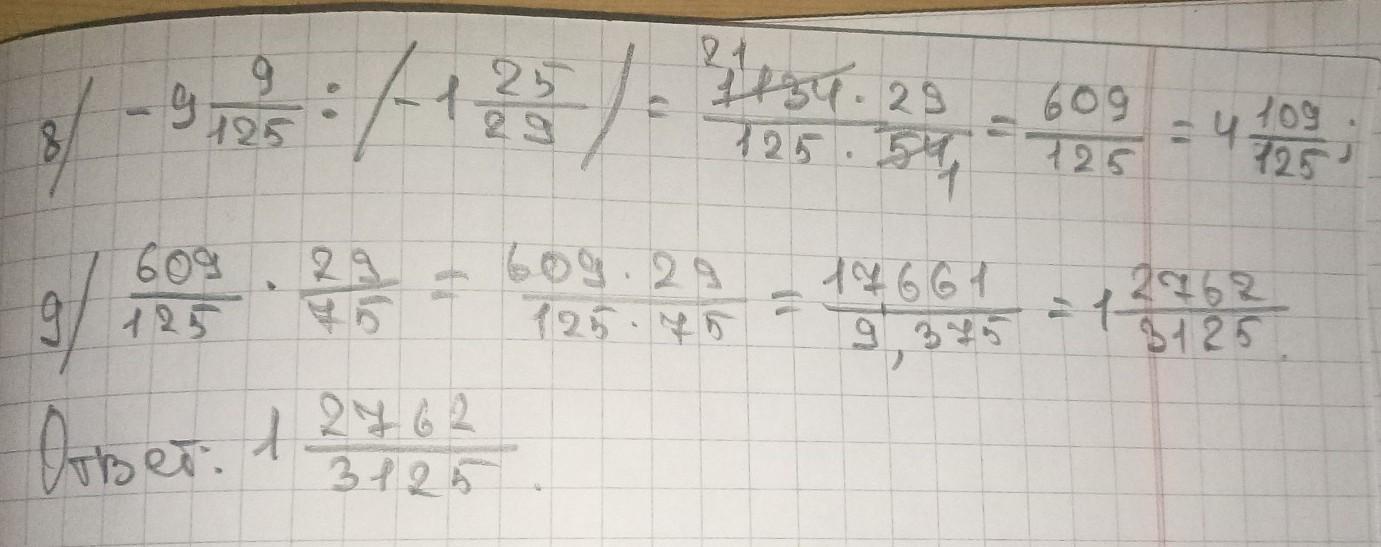 8) -9 9/125 : (-1 25/29) = 1134 · 29 / 125 · 54 = 609/125 = 4 109/125;
9) 609/125 · 29/75 = 609 · 29 / 125 · 75 = 17661/9,375 = 1 2762/3125.
Ответ: 1 2762/3125.